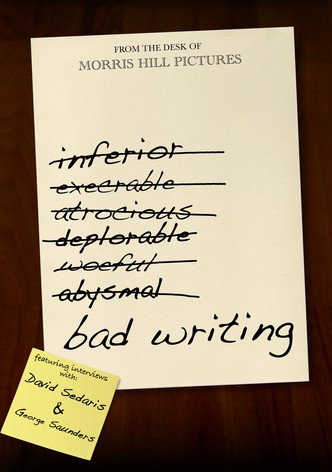 FROM THE DESK OF
MORRIS HILL PICTURES
inferior
execrable
atrocious
deplorable
woeful
abysmal
bad writing
featuring interviews
with:
David Sedaris
&
George Saunders